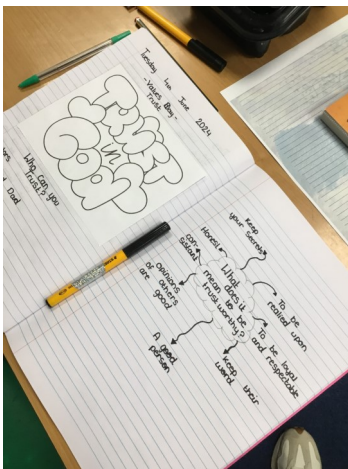 Tuesday 4th June 2024
- Values Day -
Trust
TRUST
in
GOD
Who can you
Trust?
Dad
What does it
mean to be
trustworthy?
Keep
your secrets
Honest
con-
sistant
opinions
of others
are good
A good
person
Keep their
word
To be loyal
and respectable
To be
realied upon